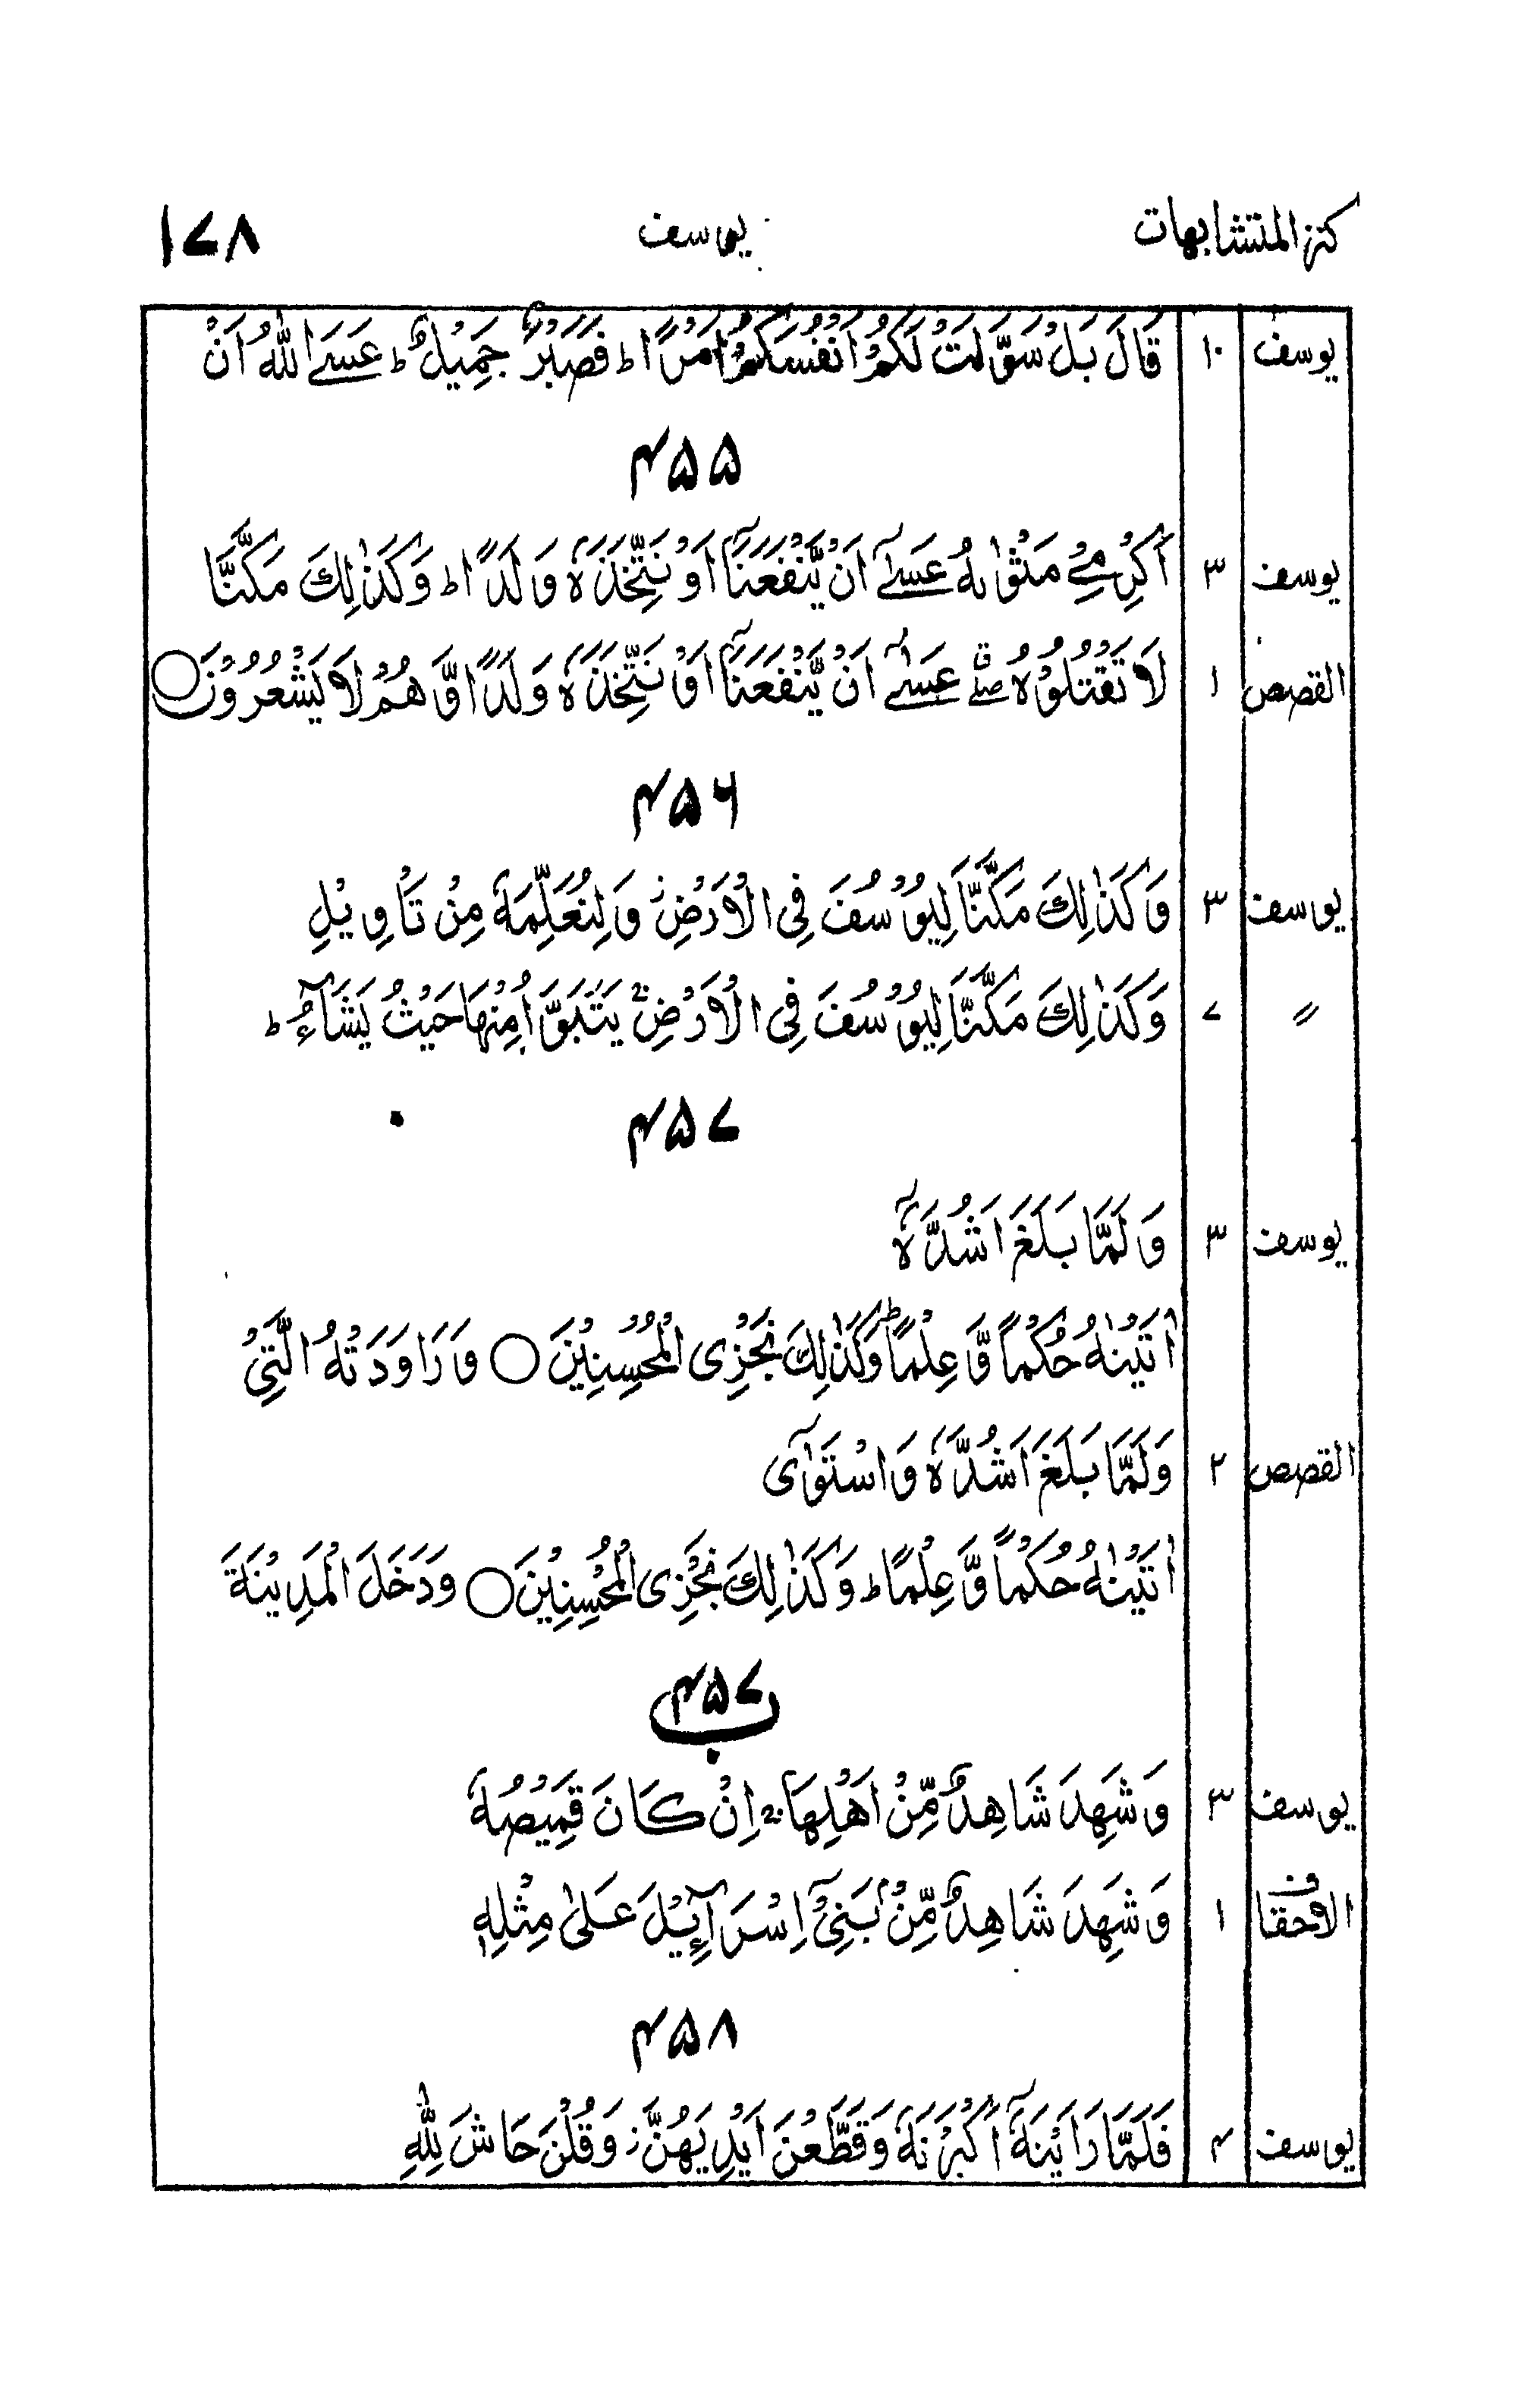 كنز المتشابهات يوسف ۱۷۸
يوسف ۱۰ قَالَ بَلْ سَوَّلَتْ لَكُمْ اَنْفُسُكُمْ اَمْرًا ؕ فَصَبْرٌ جَمِيْلٌ ؕ عَسَى اللّٰهُ اَنْ
۴۵۵
يوسف ۳ اَكْرِمِيْ مَثْوٰىهُ عَسٰۤى اَنْ يَّنْفَعَنَاۤ اَوْ نَتَّخِذَهٗ وَلَدًا ؕ وَكَذٰلِكَ مَكَّنَّا
القصص ۱ لَا تَقْتُلُوْهُ ۖ عَسٰۤى اَنْ يَّنْفَعَنَاۤ اَوْ نَتَّخِذَهٗ وَلَدًا وَّهُمْ لَا يَشْعُرُوْنَ ○
۴۵۶
يوسف ۳ وَكَذٰلِكَ مَكَّنَّا لِيُوْسُفَ فِى الْاَرْضِ ز وَلِنُعَلِّمَهٗ مِنْ تَاْوِيْلِ
〃 ۷ وَكَذٰلِكَ مَكَّنَّا لِيُوْسُفَ فِى الْاَرْضِ ۚ يَتَبَوَّاُ مِنْهَا حَيْثُ يَشَآءُ ؕ
۴۵۷
يوسف ۳ وَلَمَّا بَلَغَ اَشُدَّهٗۤ
اٰتَيْنٰهُ حُكْمًا وَّعِلْمًا ؕ وَكَذٰلِكَ نَجْزِى الْمُحْسِنِيْنَ ○ وَرَاوَدَتْهُ الَّتِيْ
القصص ۲ وَلَمَّا بَلَغَ اَشُدَّهٗ وَاسْتَوٰۤى
اٰتَيْنٰهُ حُكْمًا وَّعِلْمًا ؕ وَكَذٰلِكَ نَجْزِى الْمُحْسِنِيْنَ ○ وَدَخَلَ الْمَدِيْنَةَ
۴۵۷ ب
يوسف ۳ وَشَهِدَ شَاهِدٌ مِّنْ اَهْلِهَا ۚ اِنْ كَانَ قَمِيْصُهٗ
الاحقاف ۱ وَشَهِدَ شَاهِدٌ مِّنْۢ بَنِيْۤ اِسْرَآءِيْلَ عَلٰى مِثْلِهٖ
۴۵۸
يوسف ۴ فَلَمَّا رَاَيْنَهٗۤ اَكْبَرْنَهٗ وَقَطَّعْنَ اَيْدِيَهُنَّ ز وَقُلْنَ حَاشَ لِلّٰهِ